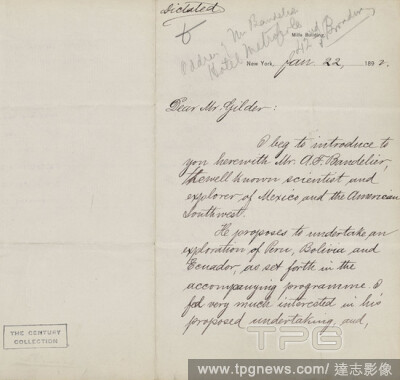 Dictated
6
Address of Mr Bandelier
Hotel Metropole
42 and Broadway
Mills Building,
New York, Jan. 22, 1892.
Dear Mr. Gilder:
I beg to introduce to
you herewith Mr. A. F. Bandelier,
the well known scientist and
explorer, of Mexico, and the American
Southwest.
He proposes to undertake an
exploration of Peru, Bolivia and
Ecuador, as set forth in the
accompanying programme I
feel very much interested in his
proposed undertaking, and,
THE CENTURY
COLLECTION
TPG
www.tpgnews.com / 達志影像